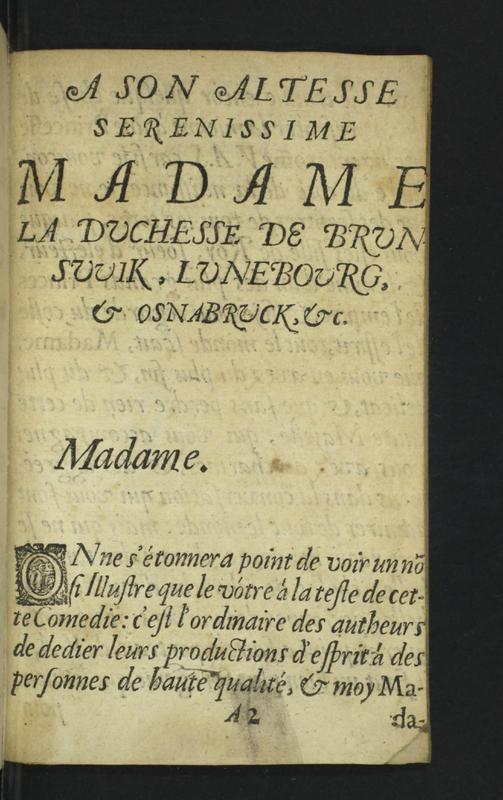 A SON ALTESSE
SERENISSIME
MADAME
LA DUCHESSE DE BRUN-
SUUIK, LUNEBOURG,
& OSNABRUCK, &c.
Madame.
ONne s'étonnera point de voir un nõ
si Illustre que le vótre á la teste de cet-
te Comedie: c'est l'ordinaire des autheurs
de dedier leurs productions d'esprit á des
personnes de haute qualité, & moy Ma-
A 2
da-